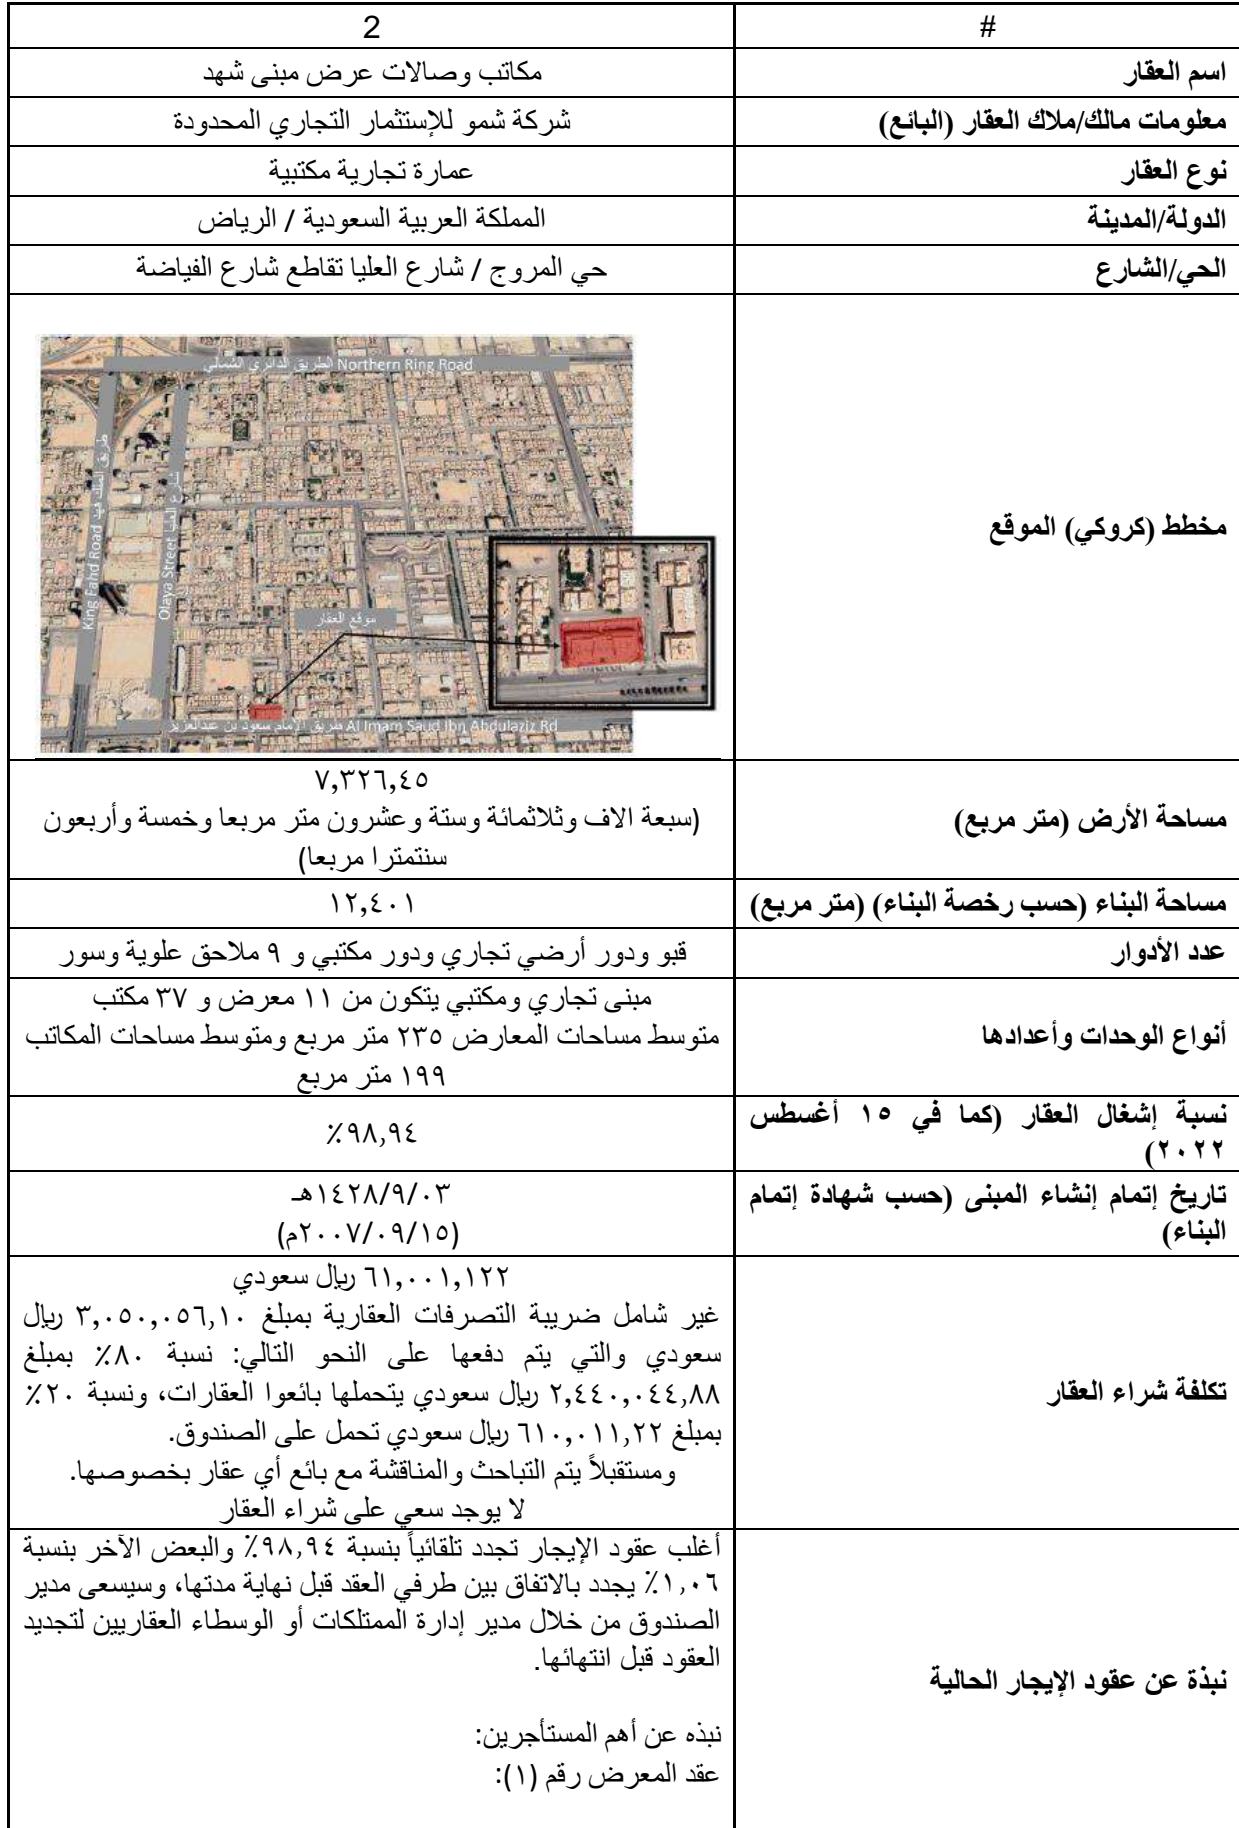 # 2
اسم العقار مكاتب وصالات عرض مبنى شهد
معلومات مالك/ملاك العقار (البائع) شركة شمو للإستثمار التجاري المحدودة
نوع العقار عمارة تجارية مكتبية
الدولة/المدينة المملكة العربية السعودية / الرياض
الحي/الشارع حي المروج / شارع العليا تقاطع شارع الفياضة
مخطط (كروكي) الموقع
الطريق الدائري الشمالي Northern Ring Road
طريق الملك فهد King Fahd Road
شارع العليا Olaya Street
موقع العقار
طريق الإمام سعود بن عبدالعزيز Al Imam Saud Ibn Abdulaziz Rd
مساحة الأرض (متر مربع)
٧,٣٢٦,٤٥
(سبعة الاف وثلاثمائة وستة وعشرون متر مربعا وخمسة وأربعون
سنتمترا مربعا)
مساحة البناء (حسب رخصة البناء) (متر مربع) ١٢,٤٠١
عدد الأدوار قبو ودور أرضي تجاري ودور مكتبي و ٩ ملاحق علوية وسور
أنواع الوحدات وأعدادها
مبنى تجاري ومكتبي يتكون من ١١ معرض و ٣٧ مكتب
متوسط مساحات المعارض ٢٣٥ متر مربع ومتوسط مساحات المكاتب
١٩٩ متر مربع
نسبة إشغال العقار (كما في ١٥ أغسطس
٢٠٢٢)
٩٨,٩٤٪
تاريخ إتمام إنشاء المبنى (حسب شهادة إتمام
البناء)
١٤٢٨/٩/٠٣هـ
(٢٠٠٧/٠٩/١٥م)
تكلفة شراء العقار
٦١,٠٠١,١٢٢ ريال سعودي
غير شامل ضريبة التصرفات العقارية بمبلغ ٣,٠٥٠,٠٥٦,١٠ ريال
سعودي والتي يتم دفعها على النحو التالي: نسبة ٨٠٪ بمبلغ
٢,٤٤٠,٠٤٤,٨٨ ريال سعودي يتحملها بائعوا العقارات، ونسبة ٢٠٪
بمبلغ ٦١٠,٠١١,٢٢ ريال سعودي تحمل على الصندوق.
ومستقبلاً يتم التباحث والمناقشة مع بائع أي عقار بخصوصها.
لا يوجد سعي على شراء العقار
نبذة عن عقود الإيجار الحالية
أغلب عقود الإيجار تجدد تلقائياً بنسبة ٩٨,٩٤٪ والبعض الآخر بنسبة
١,٠٦٪ يجدد بالاتفاق بين طرفي العقد قبل نهاية مدتها، وسيسعى مدير
الصندوق من خلال مدير إدارة الممتلكات أو الوسطاء العقاريين لتجديد
العقود قبل انتهائها.
نبذه عن أهم المستأجرين:
عقد المعرض رقم (١):